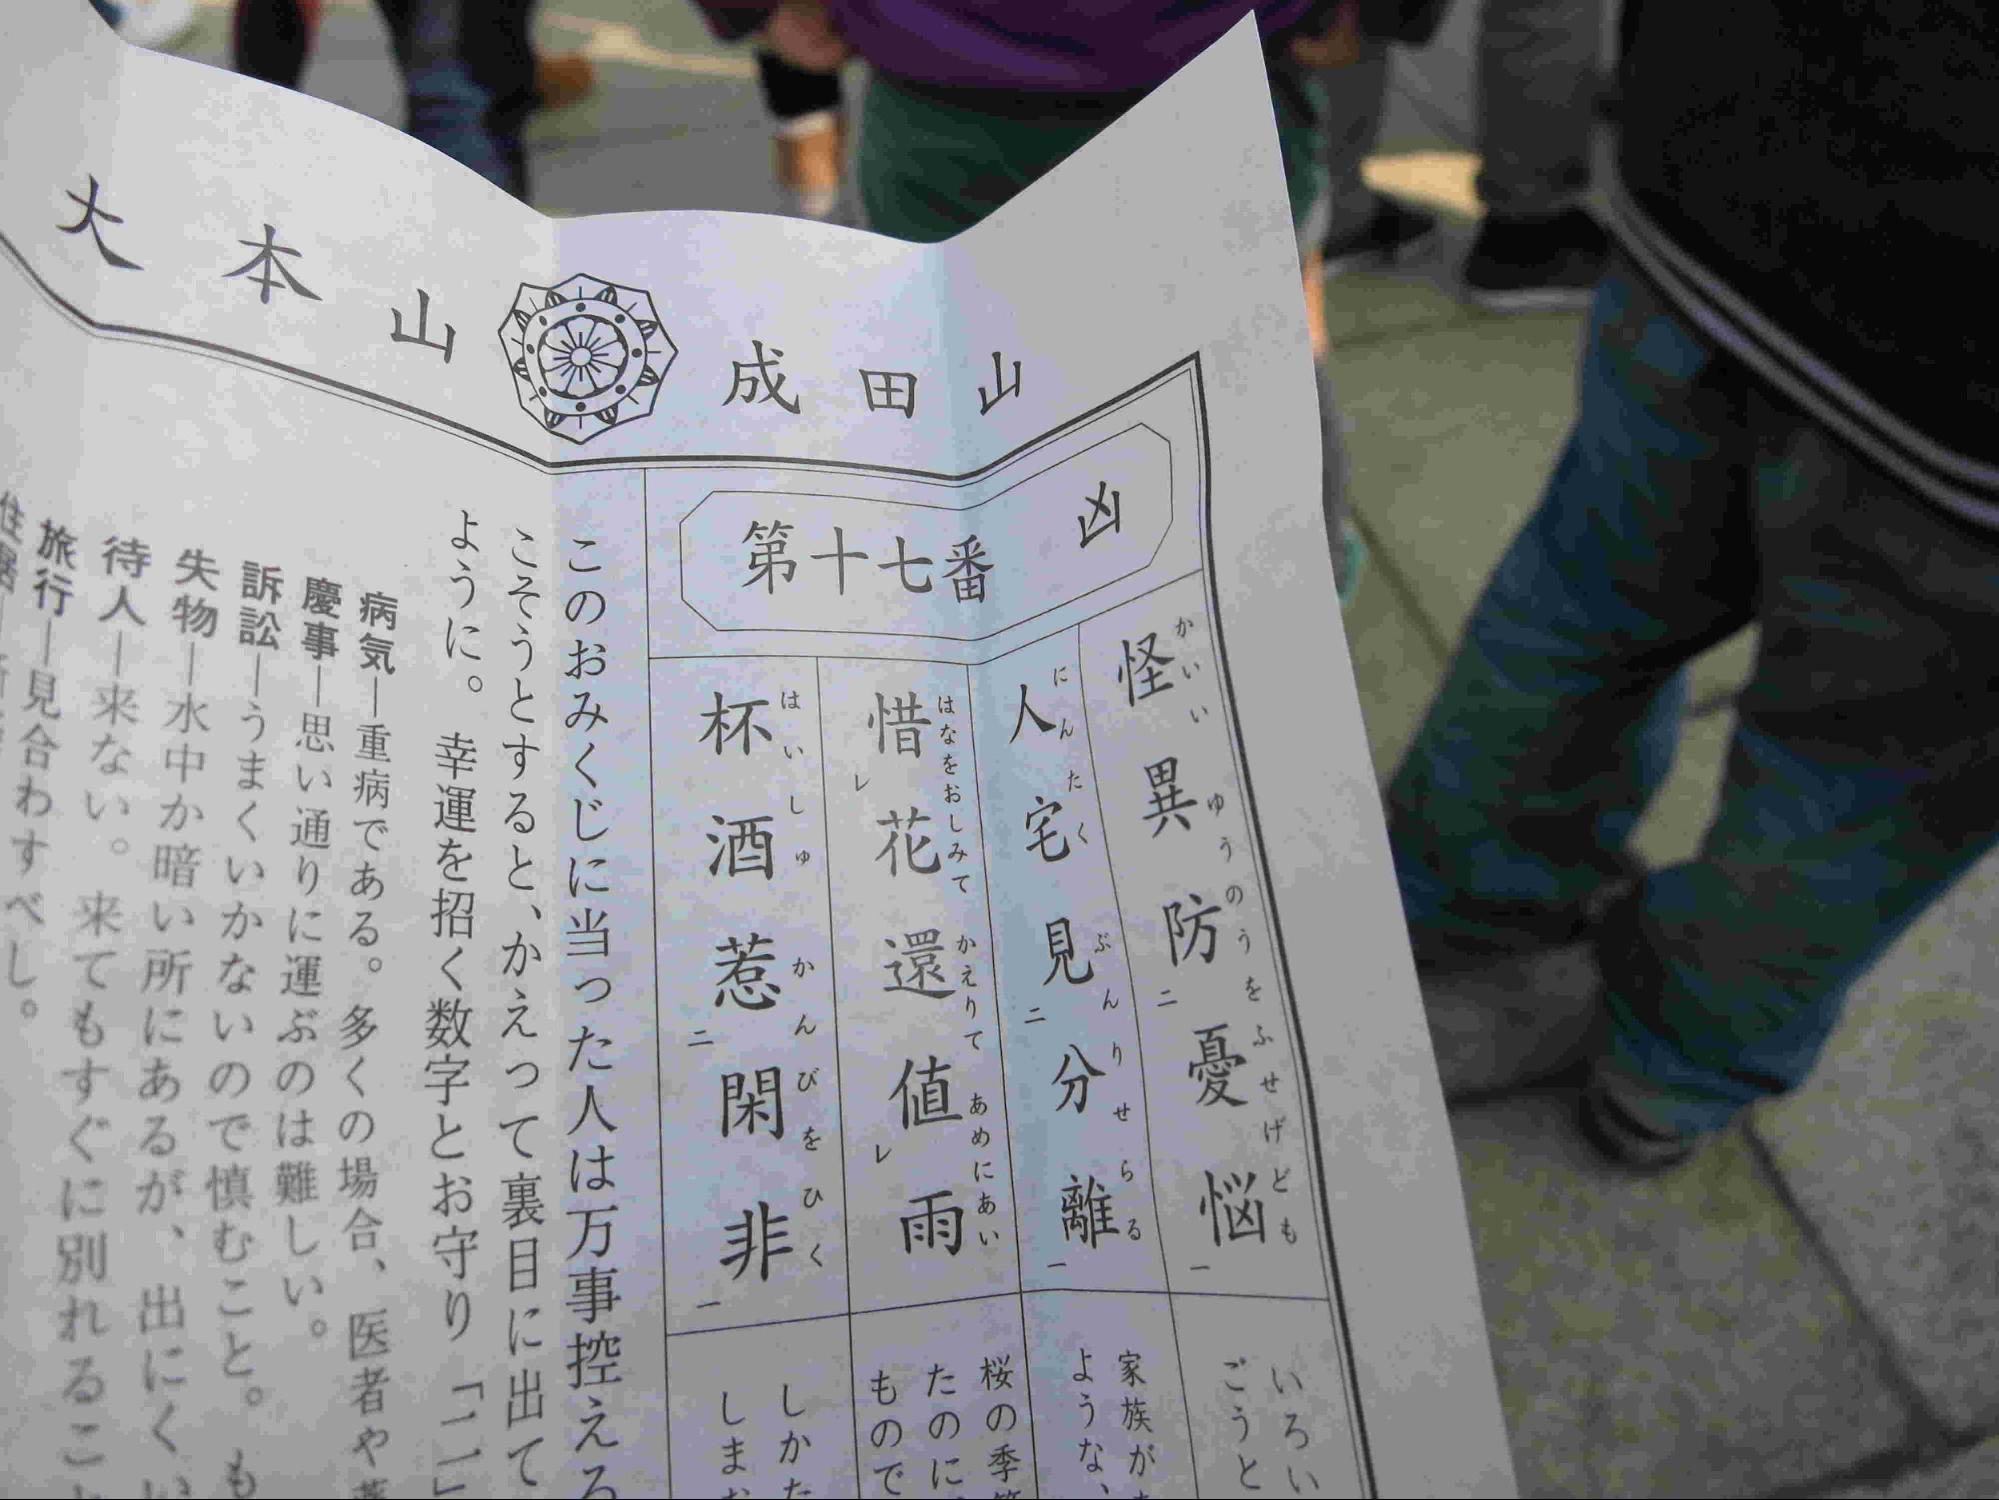 大本山 成田山
第十七番 凶
怪異防憂悩
かいい ゆうのうをふせげども
二 一
人宅見分離
にんたく ぶんりせらる
二 一
惜花還値雨
はなをおしみて かえりて あめにあい
レ レ
杯酒惹閑非
はいしゅ かんぴをひく
二 一
いろい
ごうと
家族が
ような、
桜の季節
たのに
もので
しかた
しまお
このおみくじに当った人は万事控える
こそうとすると、かえって裏目に出て
ように。幸運を招く数字とお守り「二」
病気―重病である。多くの場合、医者や薬
慶事―思い通りに運ぶのは難しい。
訴訟―うまくいかないので慎むこと。も
失物―水中か暗い所にあるが、出にくい
待人―来ない。来てもすぐに別れること
旅行―見合わすべし。
住居―